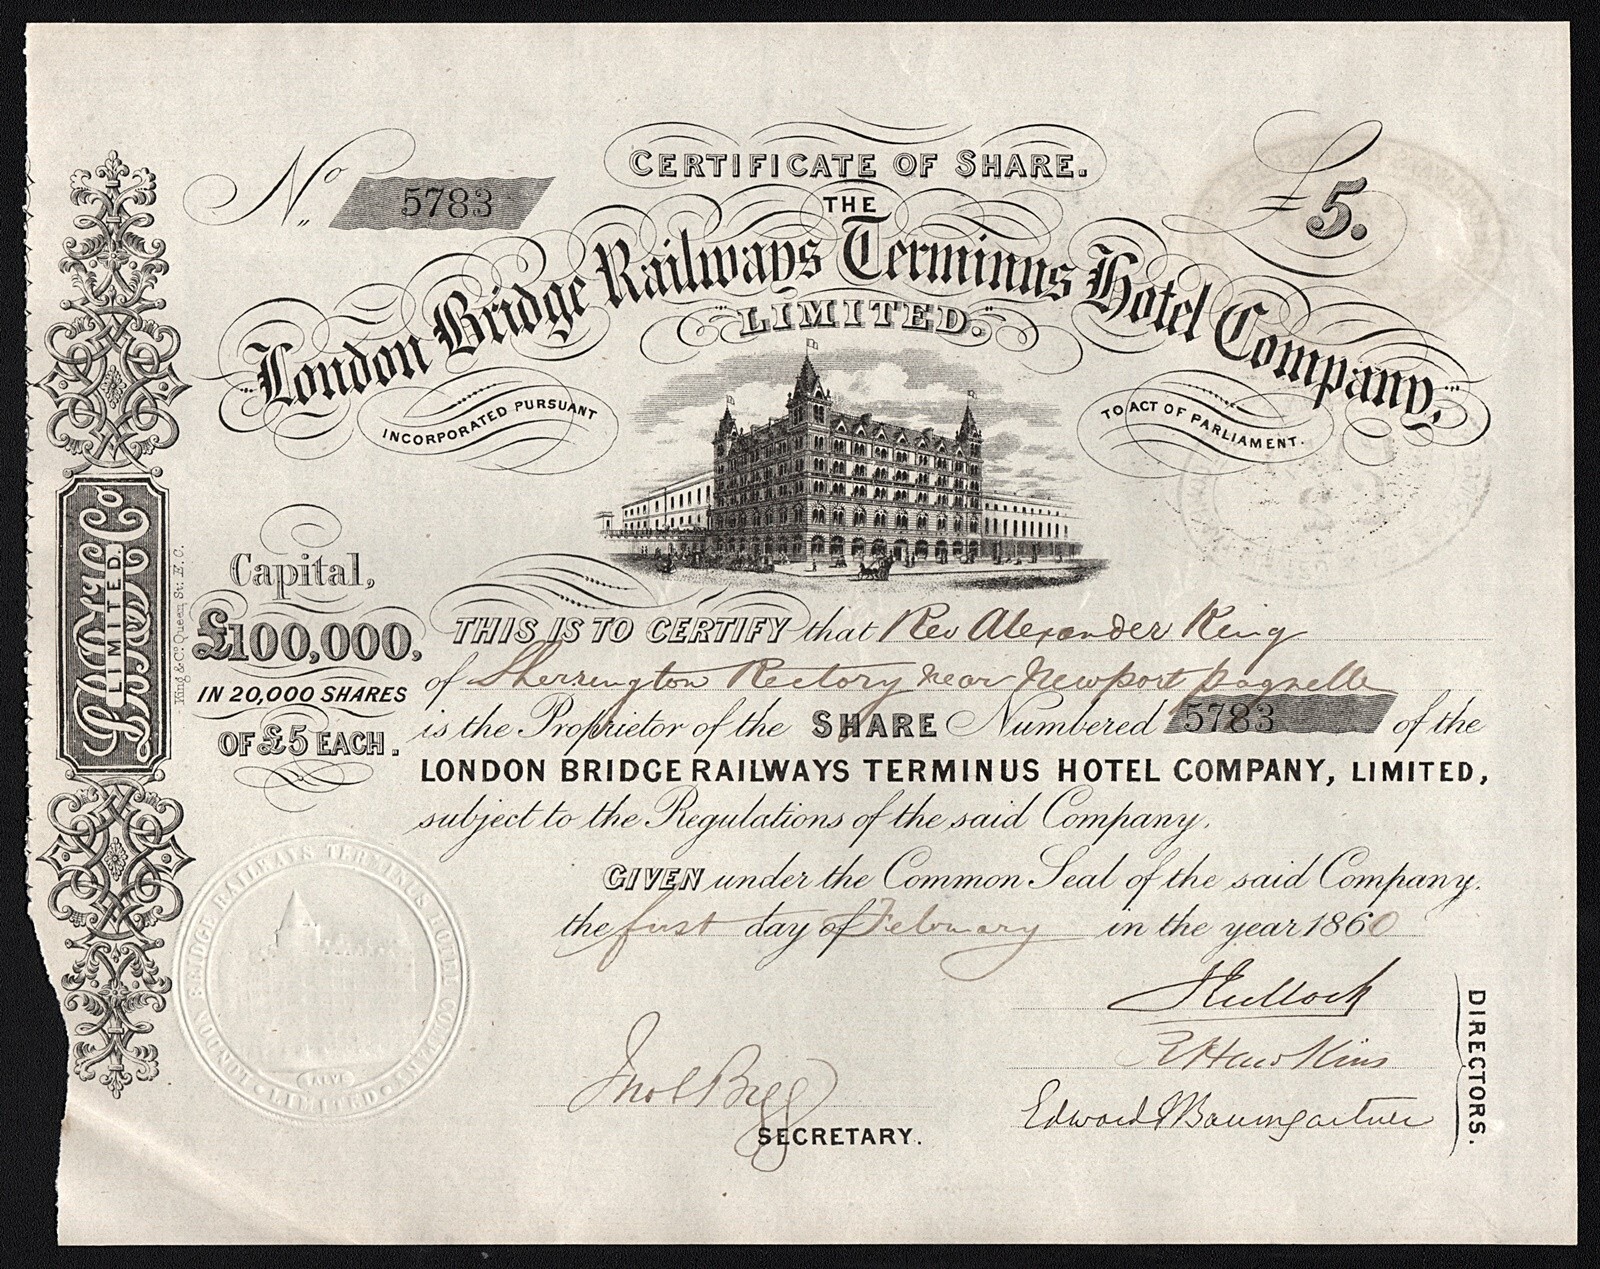 CERTIFICATE OF SHARE.
No 5783
£5.
THE
London Bridge Railways Terminus Hotel Company,
"LIMITED."
INCORPORATED PURSUANT
TO ACT OF PARLIAMENT.
LIMITED.
King & Co. Queen St. E.C.
Capital,
£100,000,
IN 20,000 SHARES
OF £5 EACH.
THIS IS TO CERTIFY that Rev Alexander King
of Sherrington Rectory near Newport pagnelle
is the Proprietor of the SHARE Numbered 5783 of the
LONDON BRIDGE RAILWAYS TERMINUS HOTEL COMPANY, LIMITED,
subject to the Regulations of the said Company.
GIVEN under the Common Seal of the said Company,
the first day of February in the year 1860
LONDON BRIDGE RAILWAYS TERMINUS HOTEL COMPANY
LIMITED
R Hawkins
Edward J Baumgartner
DIRECTORS.
SECRETARY.